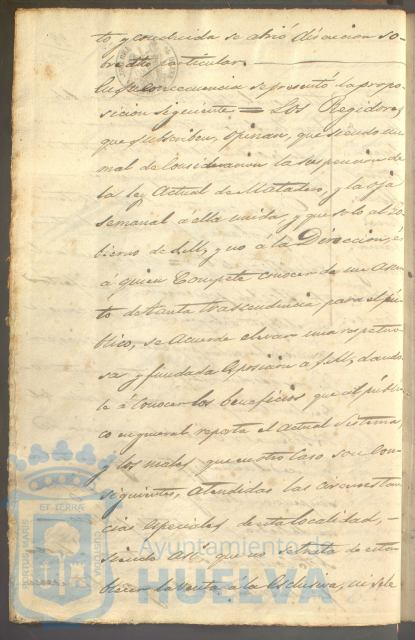 to, y concluida se abrió discusion so-
bre dho particular.
En su consecuencia se presentó la propo-
sicion siguiente = Los Regidores
que suscriben, opinan, que siendo un
mal de consideracion la suspension de
la ley actual de Matadero, y la
semanal á ella unida, y que solo al Go-
bierno de S.M. y no á la Direccion, és
á quien compete conocer de un asun-
to de tanta trascendencia para el pú-
blico, se acuerde elevar una respetuo-
sa y fundada esposicion á S.M. dando-
le á conocer los beneficios que al públi-
co en general reporta el actual sistema,
y los males que en otro caso son con-
siguientes, atendidas las circunstan-
cias especiales de esta localidad,
siendo asi que no se trata de esta-
blecer la venta á la esclusiva, ni solo
ET TERRA
PORTUS MARIS
CUSTODIA
Ayuntamiento de
HUELVA